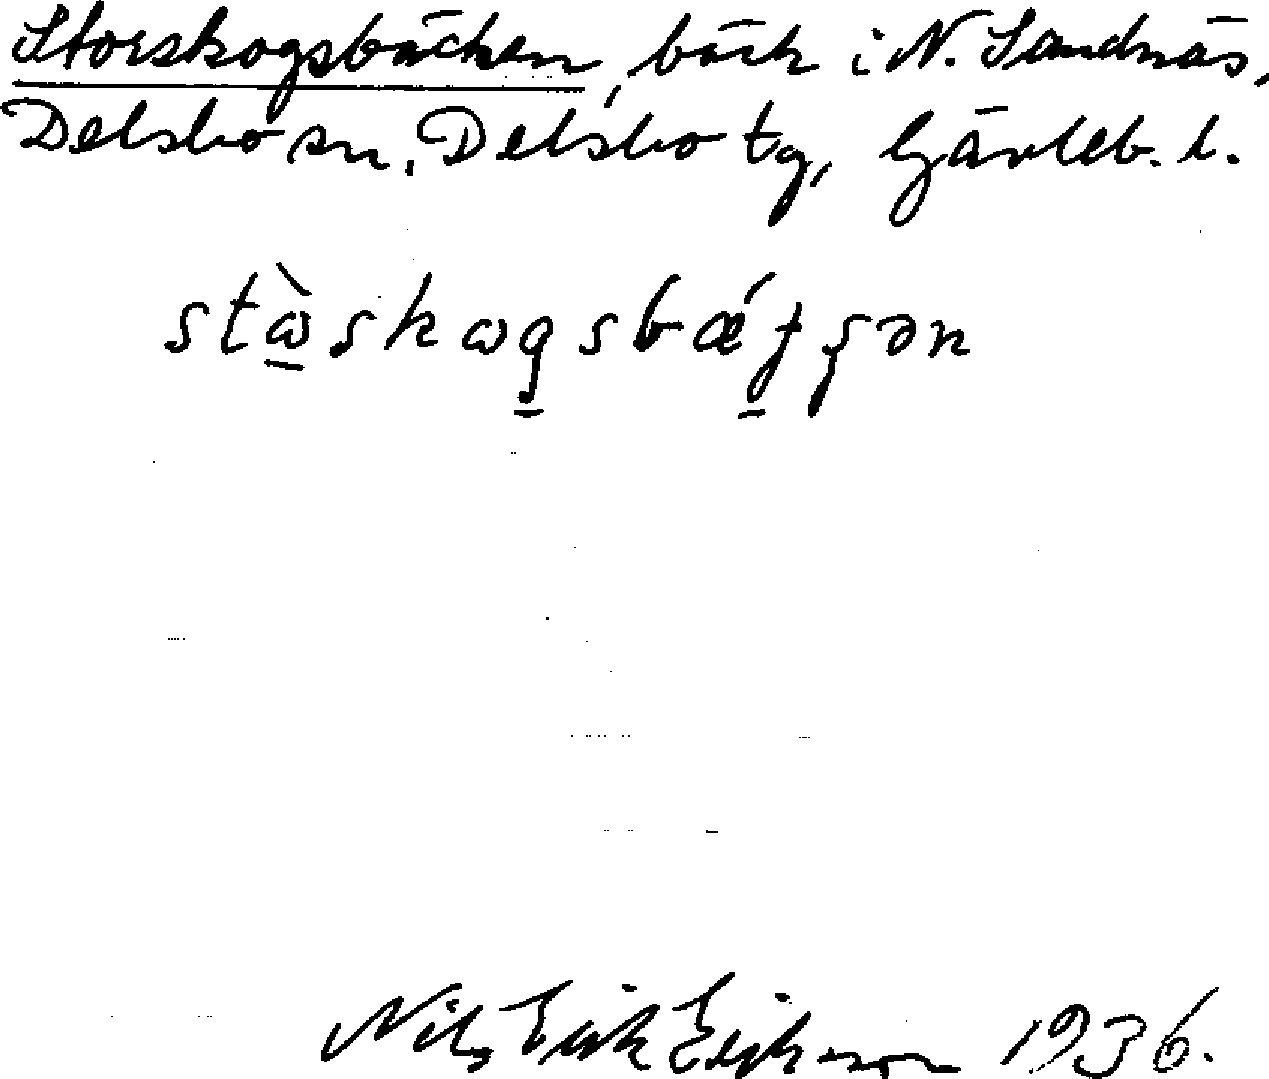 Storskogsbäcken, bäck i N. Sandnäs,
Delsbo sn, Delsbo tg, Gävleb. l.
stὼ̠skωg̠sbǽɟ̠ʂən
Nils Erik Eriksson 1936.